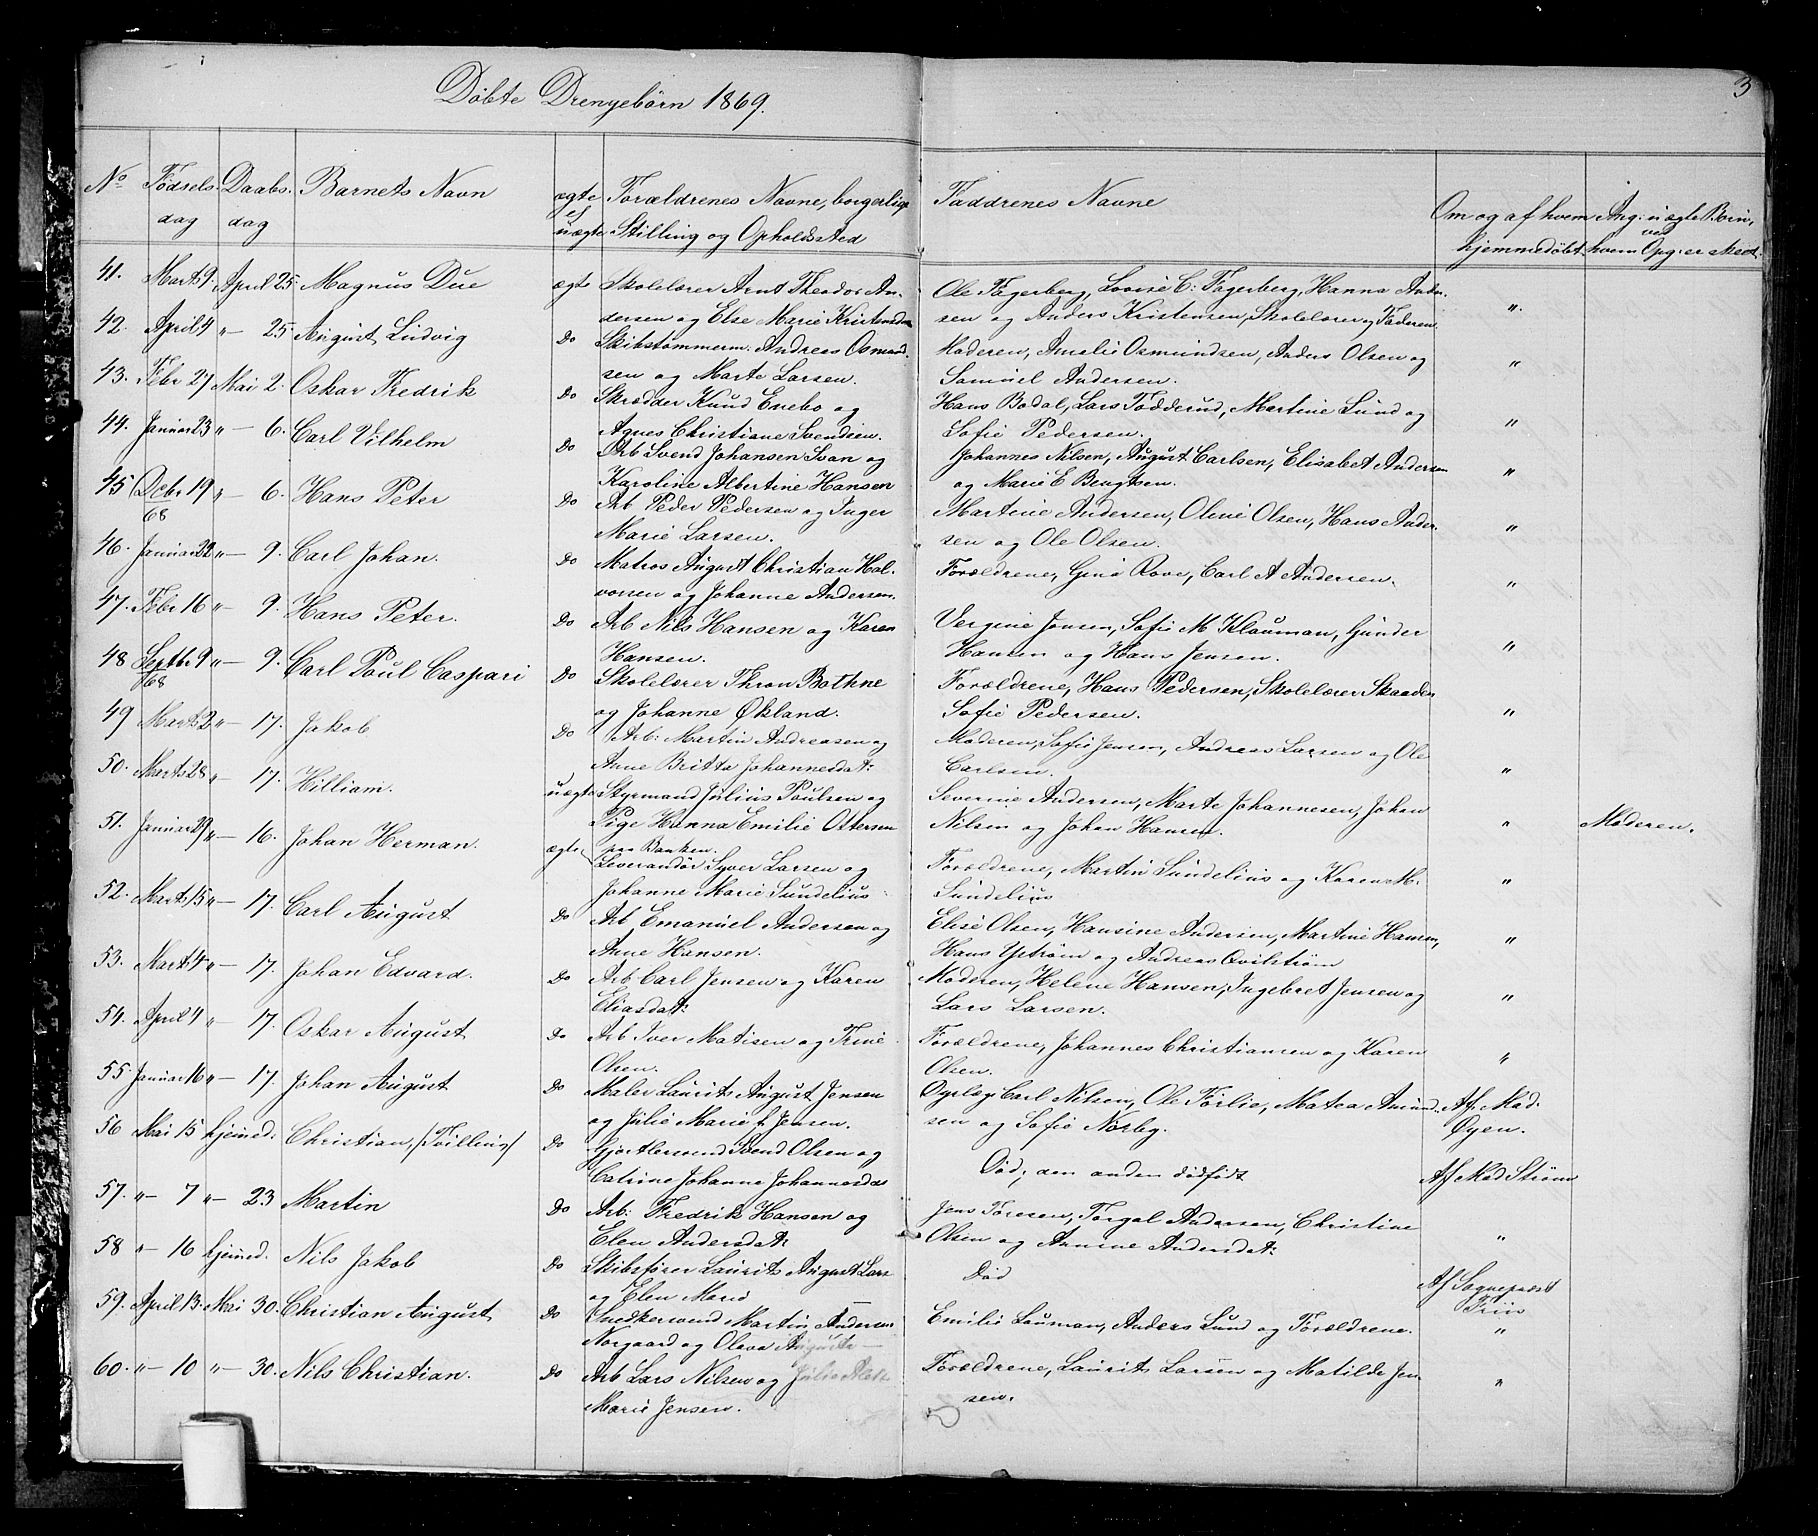 Döbte Drengebörn 1869.
3
No Födselsdag Daabsdag Barnets Navn ægte el uægte Forældrenes Navne, borgerlige Stilling og Opholdssted Faddrenes Navne Om og af hvem hjemmedöbt Ang: uægte Börn, ved hvem Opg: er skeet.
41. Marts 9. April 25. Magnus Due ægte Skolelærer Arnt Theodor An- Ole Fagerberg, Lovise C: Fagerberg, Hanna Ander-
dersen og Else Marie Kristensdr sen og Anders Kristensen, Skolelærer og Faderen. "
42. April 4 " — 25 August Ludvig Do Skibstømmerm. Andreas Osmund- Moderen, Amalie Osmundsen, Anders Olsen og
sen og Marte Larsen. Samuel Andersen. "
43. Febr 27 Mai 2. Oskar Fredrik Do Skrædder Knud Enebo og Hans Bodal, Lars Födderud, Martine Lund og
Agnes Christiane Svendsen. Sofie Pedersen. "
44. Januar 23 " — 6. Carl Vilhelm Do Arb Svend Johansen Svan og Johannes Nilsen, August Carlsen, Elisabet Andersen
Karoline Albertine Hansen og Marie E Bengtsen. "
45 Decbr 19 68 " — 6. Hans Peter Do Arb Peder Pedersen og Inger Martine Andersen, Oline Olsen, Hans Ander-
Marie Larsen. sen og Ole Olsen. "
46. Januar 22 " — 9. Carl Johan. Do Matros August Christian Hal- Forældrene, Gina Rove, Carl A Andersen.
vorsen og Johanne Andersen. "
47. Febr 16 " — 9. Hans Peter. Do Arb Nils Hansen og Karen Vergine Jensen, Sofie M Klauman, Gunder
Hansen. Hansen og Hans Jensen. "
48 Septbr 9 68 " — 9. Carl Poul Caspari Do Skolelærer Thron Bothne Forældrene, Hans Pedersen, Skolelærer Skaaden
og Johanne Økland. Sofie Pedersen. "
49 Marts 2 " — 17. Jakob Do Arb: Martin Andreasen og Moderen, Sofie Jensen, Andreas Larsen og Ole
Anne Britta Johannesdat: Carlsen. "
50. Marts 28 " — 17. Hilliam. uægte Styrmand Julius Poulsen og Severine Andersen, Marte Johannesen, Johan
Pige Hanna Emilie Ottersen Nilsen og Johan Hansen. " Moderen.
paa Banken.
51. Januar 29 " — 16. Johan Herman. ægte Leverandör Syver Larsen og Forældrene, Martin Sundelius og Karen M.
Johanne Marie Sundelius Sundelius "
52. Marts 15 " — 17. Carl August Do Arb Emanuel Andersen og Elise Olsen, Hansine Andersen, Martine Hansen,
Anne Hansen. Hans Ystrøm og Andreas Qvilström "
53. Marts 4 " — 17. Johan Edvard. Do Arb Carl Jensen og Karen Moderen, Helene Hansen, Ingebret Jensen og
Eliasdat: Lars Larsen. "
54. April 4 " — 17. Oskar August Do Arb Iver Matisen og Trine Forældrene, Johannes Christiansen og Karen
Olsen. Olsen. "
55 Januar 16 " — 17. Johan August Do Maler Laurits August Jensen Carl Nilsen, Ole Förlie, Matea Amund- Af Mad.
og Julie Marie f. Jensen. sen og Sofie Norby. Øyen.
56 Mai 15 hjemed. Christian, /:Tvilling:/ Do Gjørtlersvend Svend Olsen og Död; den anden dödfödt Af Mad Ström
Catrine Johanne Johannesdat
57. " — 7 " — 23 Martin Do Arb: Fredrik Hansen og Jens Töresen, Torgal Andersen, Christine
Elen Andersdat: Olsen og Annine Andersdat: "
58 " — 16 hjemed. Nils Jakob Do Skibsförer Laurits August Lars Död Af Sognepræst
og Elen Marie Friis
59. April 13. Mai 30. Christian August Do Snedkersvend Martin Andersen Emilie Lauman, Anders Lund og Forældrene. "
Norgaard og Olava Augusta —
60. " — 10 " — 30. Nils Christian. Do Arb Lars Nilsen og Julie Forældrene, Laurits Larsen og Matilde Jen-
Marie Jensen. sen. "